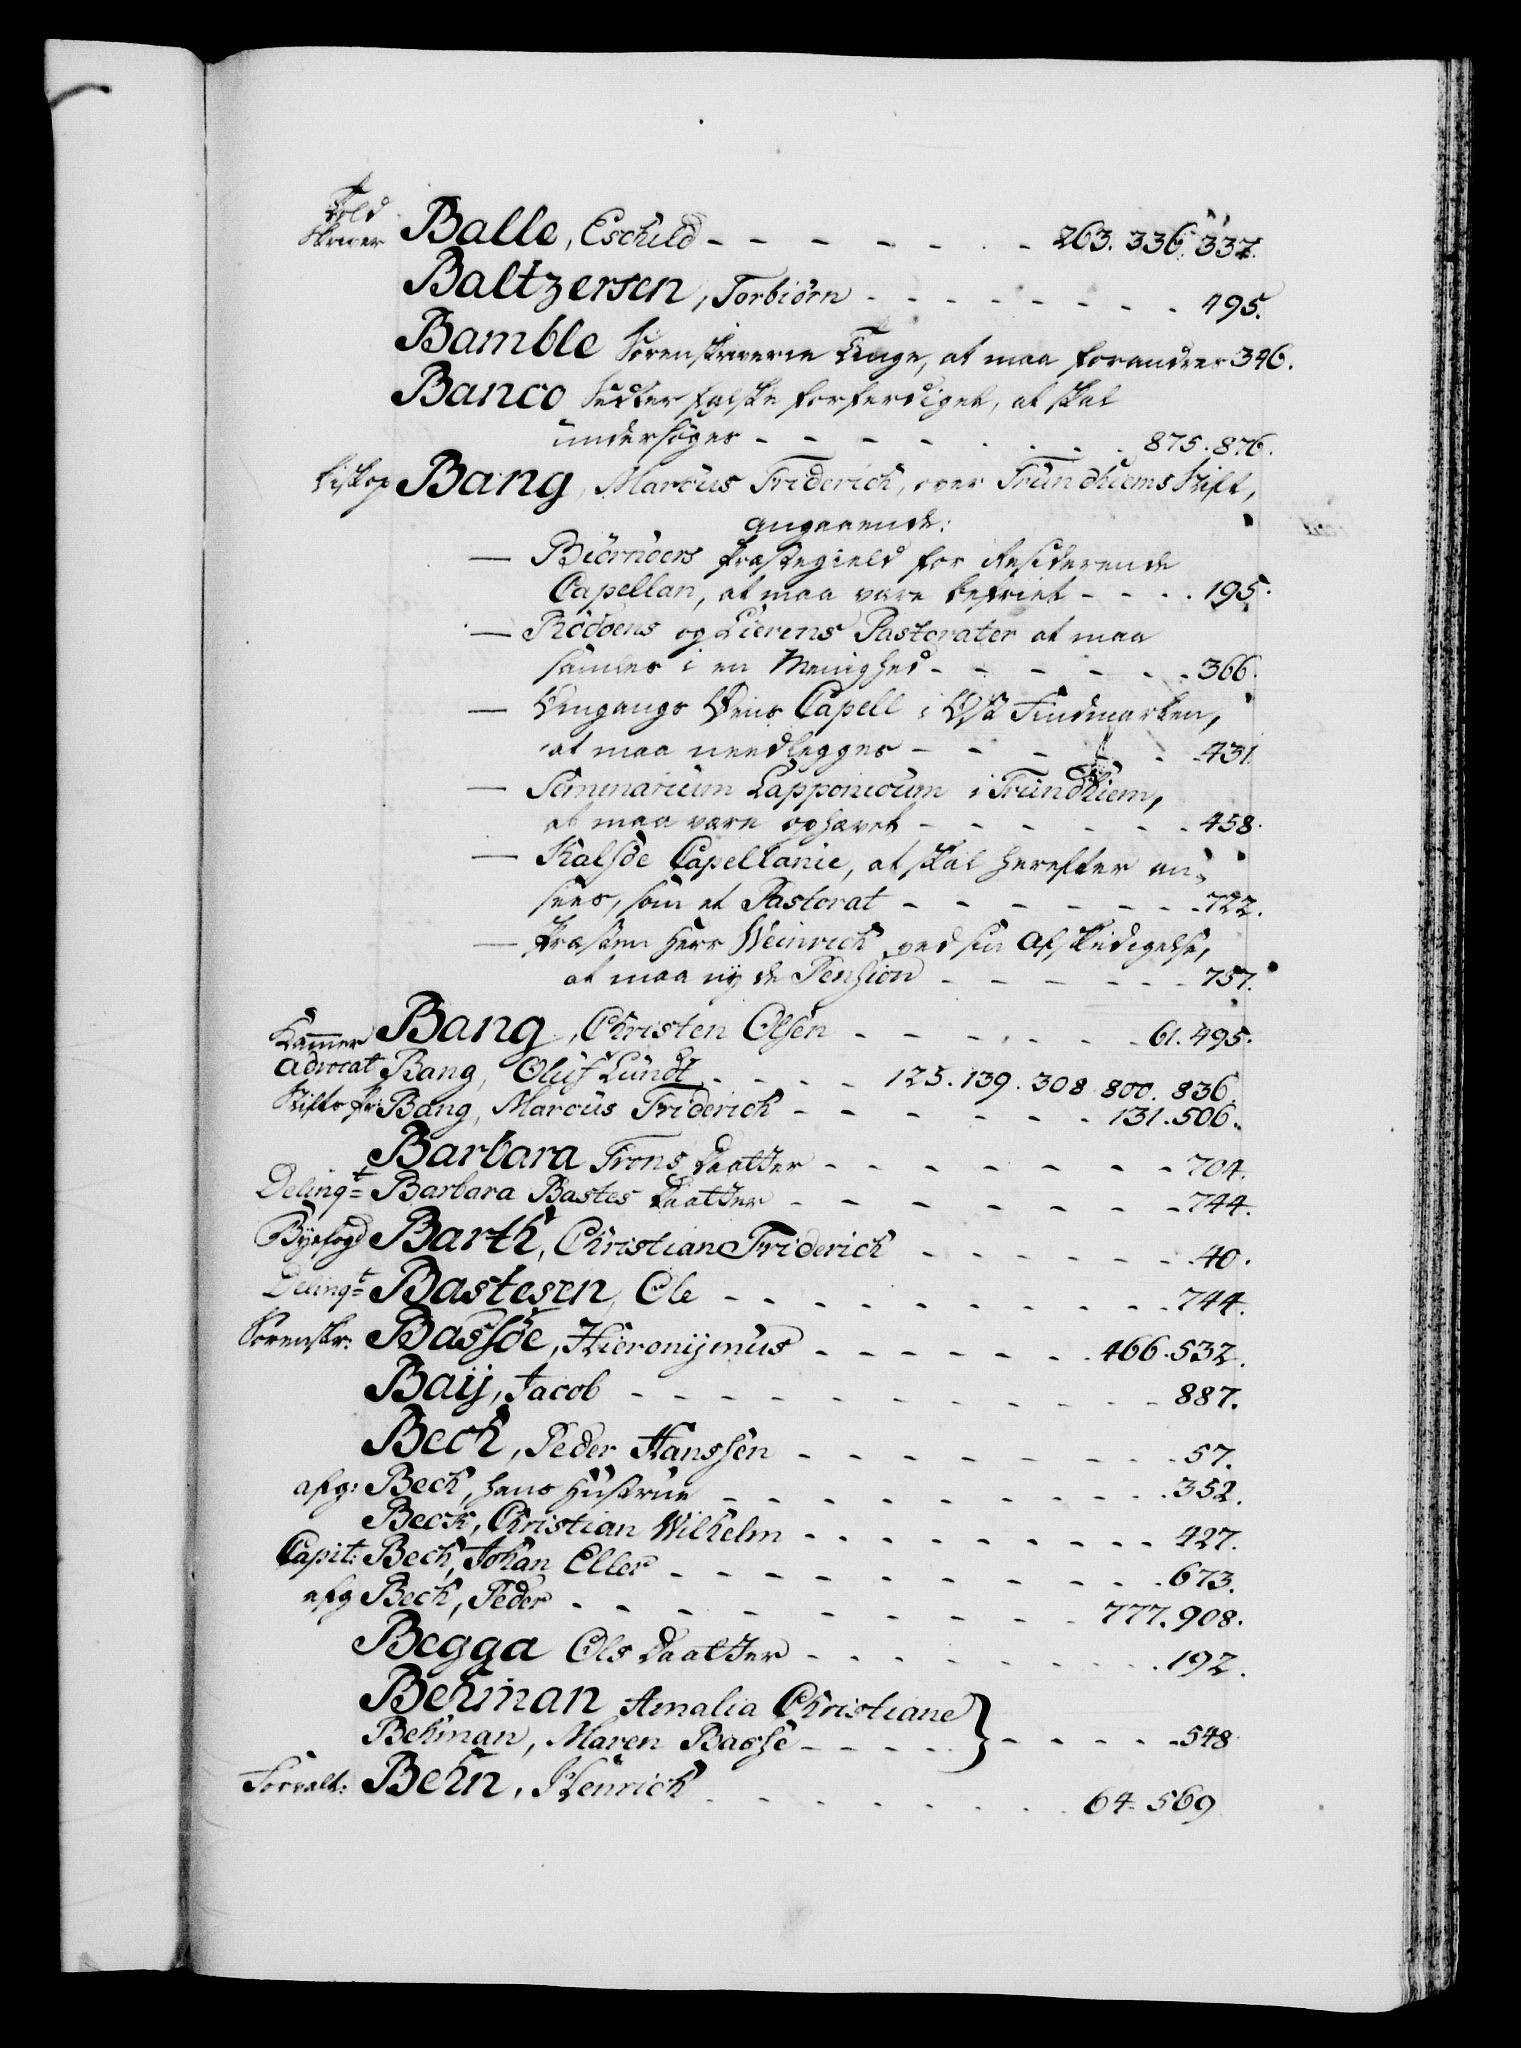 Told
Skriver Balle, Eschild - - - - - - - 263. 336. 337.
Baltzersen, Torbiörn - - - - - - - - 495.
Bamble Sorenskriverie Tinge, at maa forandres 346.
Banco Sedler falske forferdiget, at skal
undersöges - - - - - - - - 875. 876.
Biskop Bang, Marcus Friderich, over Trundhiems Stift,
angaaende:
— Biörnöers Præstegield for Residerende
Capellan, at maa være befriet - - - - 195.
— Rödöens og Lierens Pastorater at maa
samles i en Menighed - - - - - - 366.
— Öens Capell i Ost Findmarken,
at maa needlegges - - - - - - 431.
— Seminarium Lapponicum i Trundhiem,
at maa være ophævet - - - - - - 458.
— Kalsöe Capellanie, at skal herefter an-
sees, som et Pastorat - - - - - - 722.
— Præsten Herr Weinrich ved sin Afskedigelse,
at maa nyde Pension - - - - - - 757.
Bang, Christen Olsen - - - - - - 61. 495.
Kammer
Advocat Bang, Oluf Lundt - - - - 125. 139. 308. 800. 836.
Stifts Pr: Bang, Marcus Friderich - - - - - - 131. 506.
Barbara Trons Daatter - - - - - - - - 704.
Delinqt= Barbara Bastes Daatter - - - - - - - 744.
Byefogd Barth, Christian Friderich - - - - - - 40.
Delinqt= Bastesen, Ole - - - - - - - - - - 744.
Sorenskr: Bassöe, Hieronijmus - - - - - - - 466. 532.
Baij, Jacob - - - - - - - - - - - 887.
Bech, Peder Hanssen - - - - - - - - 57.
afg: Bech, hans Hustrue - - - - - - - - - 352.
Beck, Christian Wilhelm - - - - - - - - 427.
Capit: Bech, Johan Eller - - - - - - - - - 673.
afg Bech, Peder - - - - - - - - - 777. 908.
Begga Ols Daatter - - - - - - - - 192.
Behman Amalia Christiane
Behman, Maren Basse - - - - } - - - - - 548
Forvalt: Behn, Henrich - - - - - - - - 64. 569